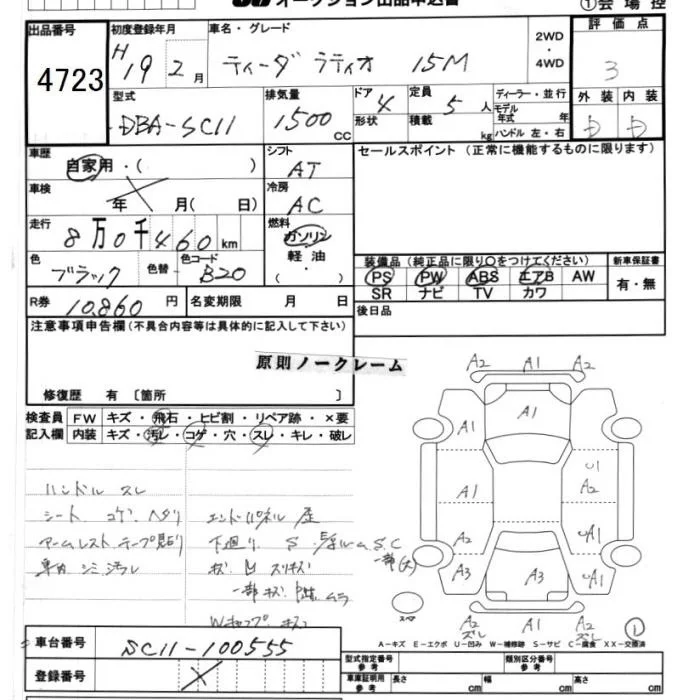 オークション出品申込書
①会場控
出品番号
4723
初度登録年月
H19 2月
車名・グレード
ティーダ ラティオ 15M
2WD
・
4WD
評価点
3
型式
DBA-SC11
排気量
1500 CC
ドア 4
形状
定員 5人
積載 kg
ディーラー・並行
モデル年式 年
ハンドル 左・右
外装 内装
D D
車歴
自家用・( )
シフト
AT
セールスポイント (正常に機能するものに限ります)
車検
年 月( 日)
冷房
AC
走行
8万0千460km
燃料
ガソリン
軽油
( )
色
ブラック
色替
色コード
B20
装備品 (純正品に限り○をつけてください)
新車保証書
PS PW ABS エアB AW
SR ナビ TV カワ
有・無
R券
10,860円
名変期限 月 日
後日品
注意事項申告欄 (不具合内容等は具体的に記入して下さい)
原則ノークレーム
修復歴 有 〔箇所 〕
検査員 FW キズ・飛石・ヒビ割・リペア跡・×要
記入欄 内装 キズ・汚レ・コゲ・穴・スレ・キレ・破レ
ハンドル スレ
シート コゲ ヘタリ
エンドパネル 歪
アームレスト テープ貼り
下廻り S
車内 シミ 汚レ
一部
A2 A1 A2
A1 A1
A1 U1
A2
A2 UA1
A3 A3 UA1
スペア
A2 A1 A2
スレ スレ
①
A-キズ E-エクボ U-凹み W-補修跡 S-サビ C-腐食 XX-交換済
車台番号
SC11-100555
登録番号
型式指定番号
参考
類別区分番号
参考
車庫証明用
参考
長さ cm 幅 cm 高さ cm